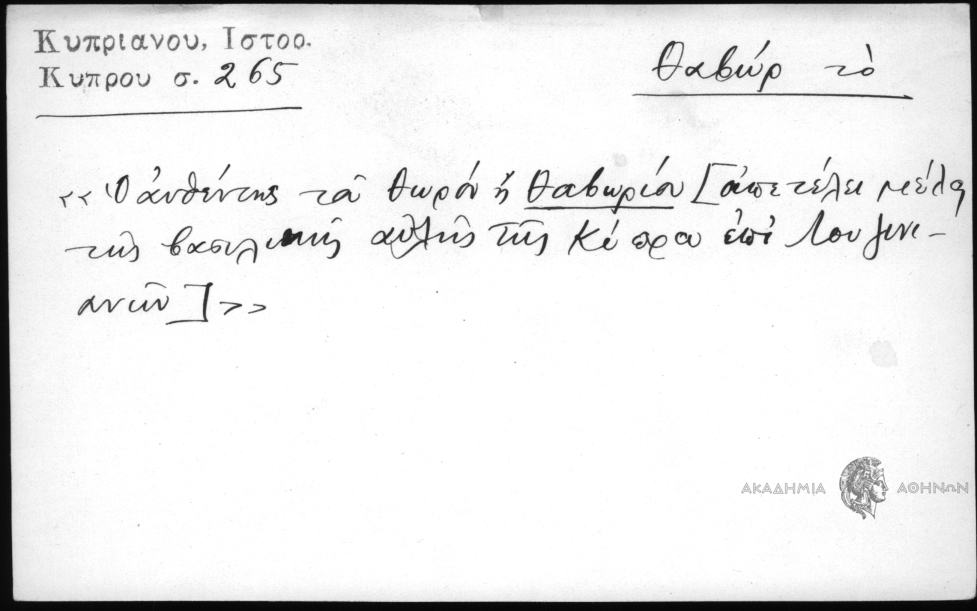 Κυπριανου, Ιστορ.
Κυπρου σ. 265
Θαβώρ τὸ
«Ὁ αὐθέντης τοῦ Θωρόν ἤ Θαβωρίου [ἀπετέλει μέλος
τῆς βασιλικῆς αὐλῆς τῆς Κύπρου ἐπὶ Λουζινι-
ανῶν]»
ΑΚΑΔΗΜΙΑ ΑΘΗΝΩΝ